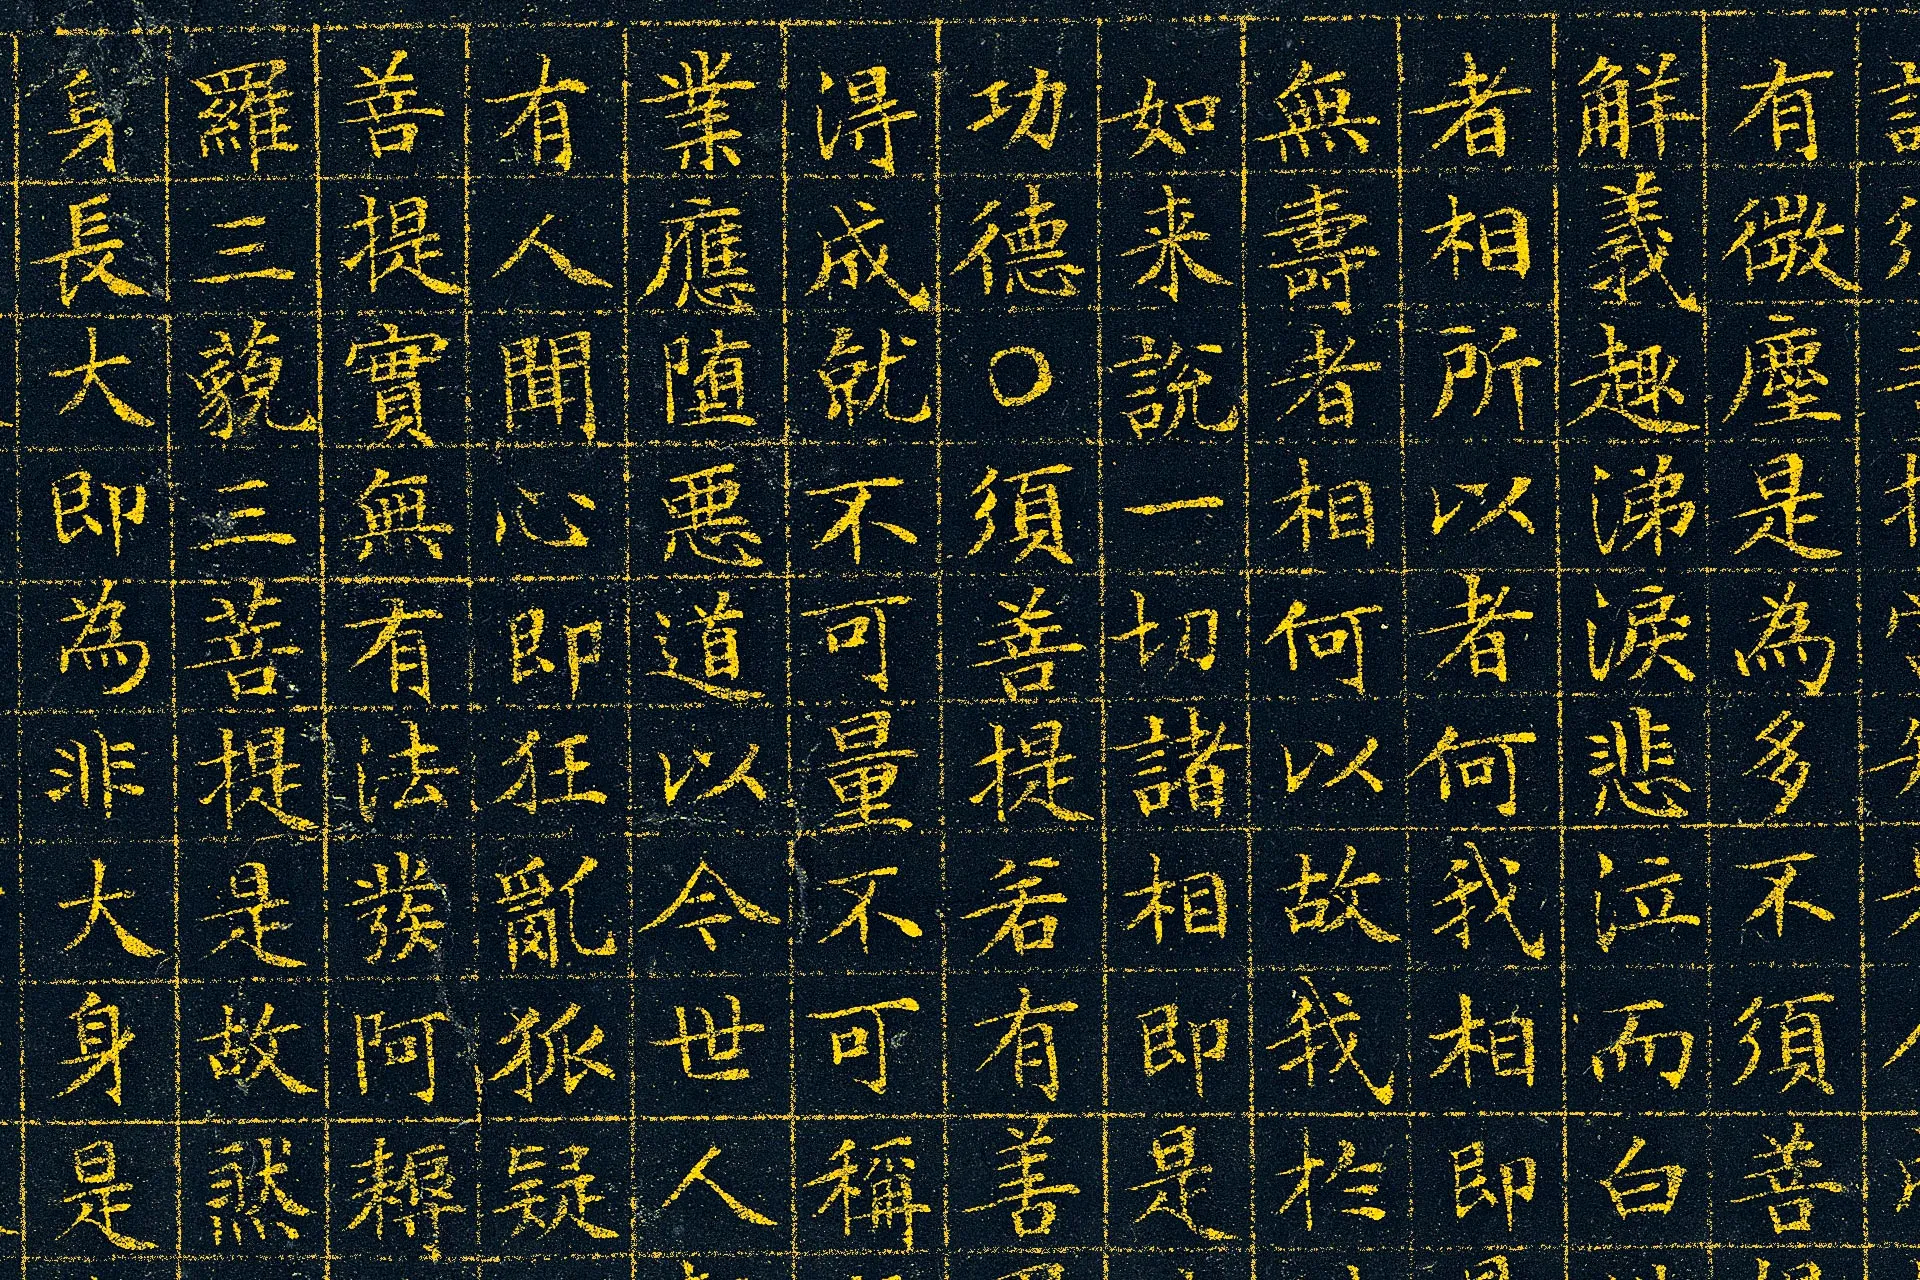 有微塵是為多不須菩
觧義趣涕淚悲泣而白
者相所以者何我相即
無壽者相何以故我於
如来說一切諸相即是
功德〇須菩提若有善
得成就不可量不可稱
業應堕悪道以今世人
有人聞心即狂亂狐疑
菩提實無有法發阿耨
羅三藐三菩提是故然
身長大即為非大身是